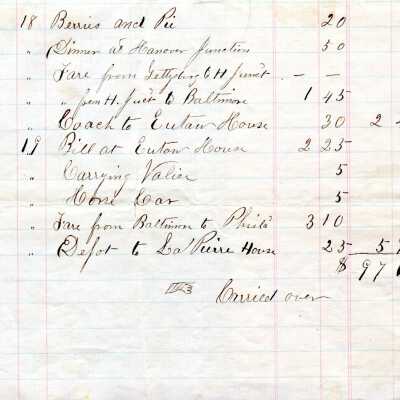 18 Berries and Pie 20
" Dinner at Hanover Junction 50
" Fare from Gettysbg to H Junct. — —
" " from H. Junct to Baltimore 1 45
" Coach to Eutaw House 30 2
19 Bill at Eutaw House 2 25
" Carrying Valice 5
" Horse Car 5
" Fare from Baltimore to Phila 3 10
" Depot to La Pierre House 25 5
$ 97
Carried over